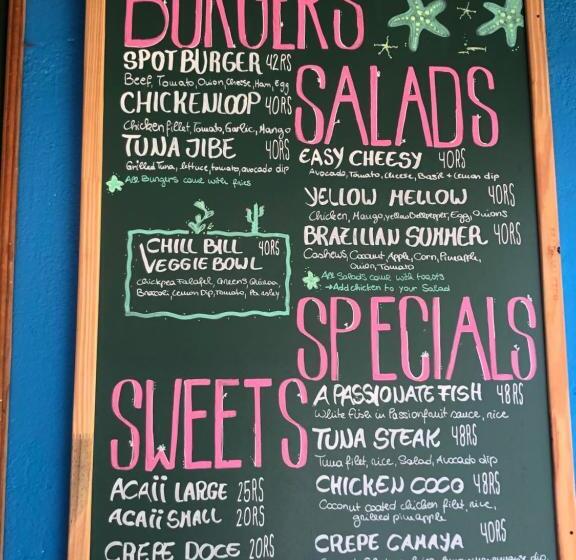 BURGERS
SPOT BURGER 42RS
Beef, Tomato, Onion, Cheese, Ham, Egg
CHICKENLOOP 40RS
Chicken fillet, Tomato, Garlic, Mango
TUNA JIBE 40RS
Grilled Tuna, lettuce, tomato, avocado dip
All Burgers come with fries
CHILL BILL 40RS
VEGGIE BOWL
Chickpea Falafel, Greens, Quinoa,
Broccoli, Lemon Dip, Tomato, Parsley
SWEETS
ACAII LARGE 25RS
ACAII SMALL 20RS
CREPE DOCE 20RS
SALADS
EASY CHEESY 40RS
Avocado, Tomato, Cheese, Basil + Lemon dip
YELLOW MELLOW 40RS
Chicken, Mango, yellow Bellpepper, Egg, Onions
BRAZILIAN SUMMER 40RS
Cashews, Coconut, Apple, Corn, Pineapple,
Onion, Tomato
All Salads come with toasts
→Add chicken to your Salad
SPECIALS
A PASSIONATE FISH 48RS
White Fish in Passionfruit sauce, rice
TUNA STEAK 48RS
Tuna filet, rice, Salad, Avocado dip
CHICKEN COCO 48RS
Coconut coated chicken filet, rice,
grilled pineapple
CREPE CAMAYA 40RS